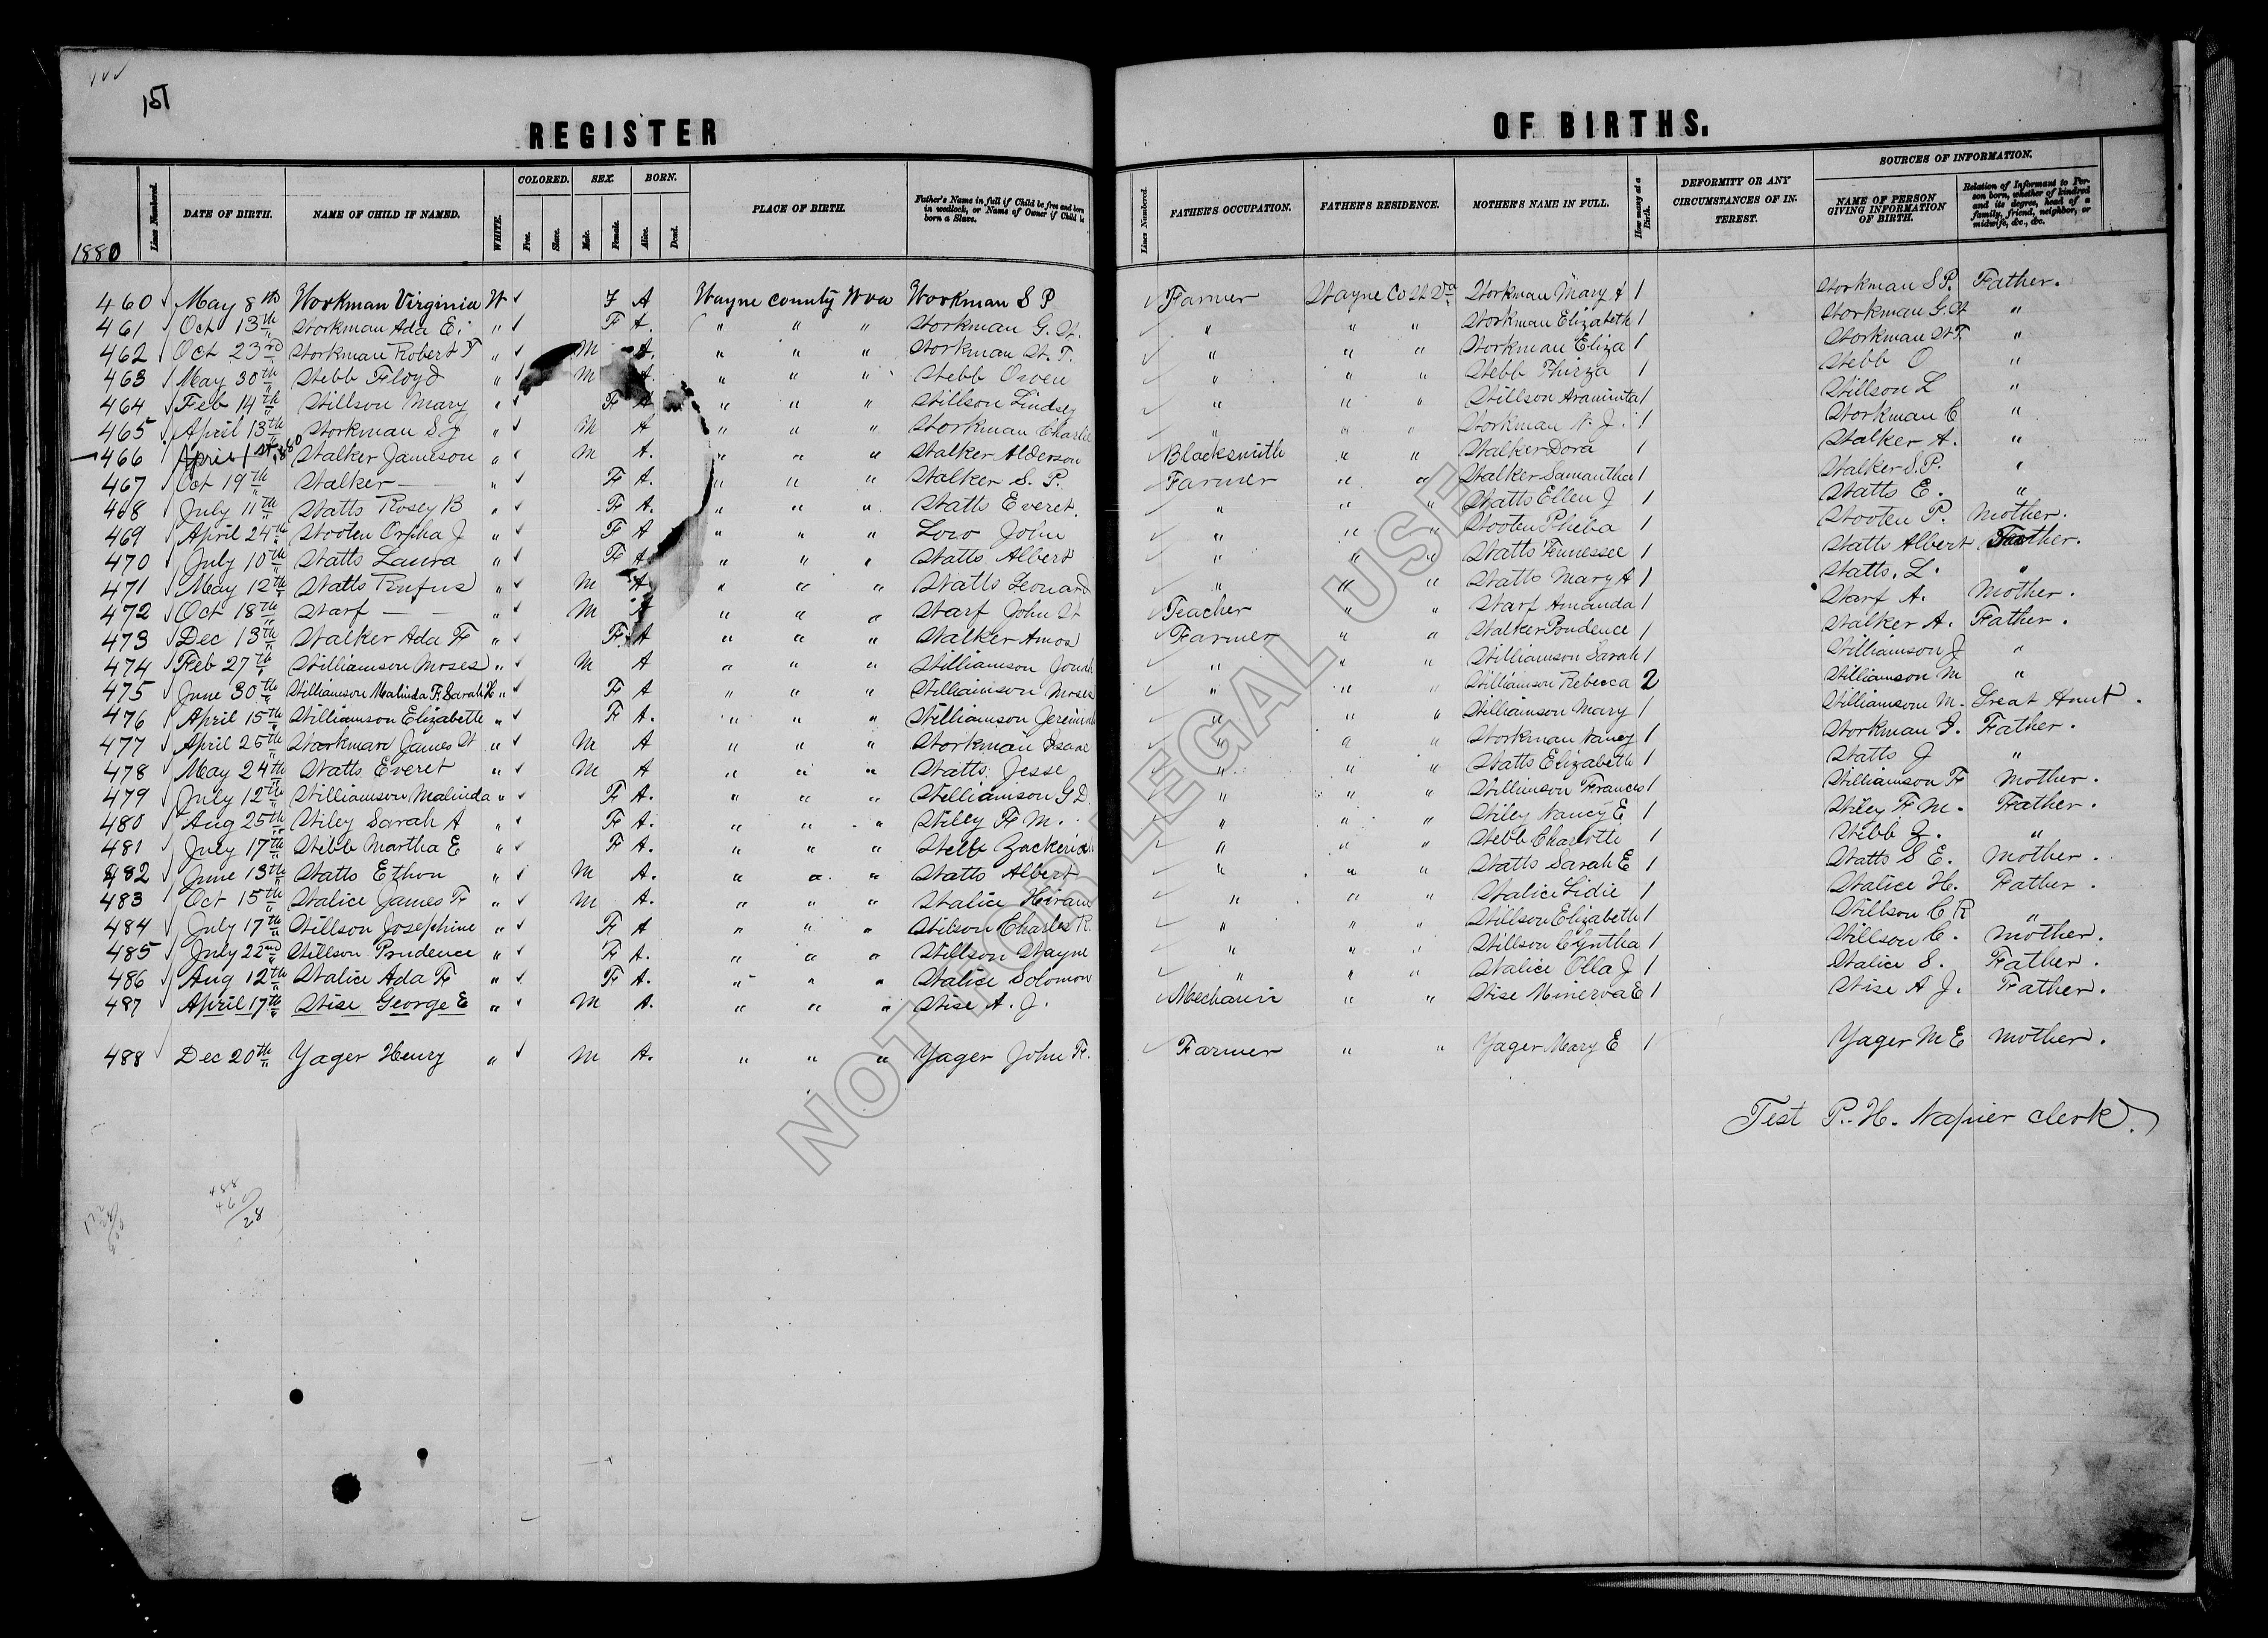 151
REGISTER OF BIRTHS.
1880
Lines Numbered. DATE OF BIRTH. NAME OF CHILD IF NAMED. WHITE. COLORED. Free. Slave. SEX. Male. Female. BORN. Alive. Dead. PLACE OF BIRTH. Father's Name in full if Child be free and born in wedlock, or Name of Owner if Child be born a Slave. Lines Numbered. FATHER'S OCCUPATION. FATHER'S RESIDENCE. MOTHER'S NAME IN FULL. How many at a Birth. DEFORMITY OR ANY CIRCUMSTANCES OF INTEREST. SOURCES OF INFORMATION. NAME OF PERSON GIVING INFORMATION OF BIRTH. Relation of Informant to Person born, whether of kindred and its degree, head of a family, friend, neighbor, or midwife, &c., &c.
460 May 8th Workman Virginia W F A Wayne county Wva Workman S P Farmer Wayne Co W Va Workman Mary A 1 Workman S P. Father.
461 Oct 13th Workman Ada E. " F A. " " " Workman G. W. " " " Workman Elizabeth 1 Workman G. W "
462 Oct 23rd Workman Robert F " M A. " " " Workman W. T. " " " Workman Eliza 1 Workman W T. "
463 May 30th Webb Floyd " M A. " " " Webb Owen " " " Webb Thirza 1 Webb O "
464 Feb 14th Willson Mary " F A " " " Willson Lindsey " " " Willson Araminta 1 Willson L "
465 April 13th Workman S J " M A " " " Workman Charlie " " " Workman N. J. 1 Workman C "
466 April 1st 1880 Walker Jameson " M A. " " " Walker Alderson Blacksmith " " Walker Dora 1 Walker A. "
467 Oct 19th Walker — " F A. " " " Walker S. P. Farmer " " Walker Samantha 1 Walker S. P. "
468 July 11th Watts Rosey B " F A. " " " Watts Everet. " " " Watts Ellen J 1 Watts E. "
469 April 24th Wooten Orpha J " F A " " " Low John " " " Wooten Pheba 1 Wooten P. Mother.
470 July 10th Watts Laura " F A " " " Watts Albert " " " Watts Tennessee 1 Watts Albert Father.
471 May 12th Watts Rufus " M A " " " Watts Leonard " " " Watts Mary A 1 Watts. L. "
472 Oct 18th Warf — — " M A " " " Warf John W Teacher " " Warf Amanda 1 Warf A. Mother.
473 Dec 13th Walker Ada F " F. A " " " Walker Amos Farmer " " Walker Prudence 1 Walker A. Father.
474 Feb 27th Williamson Moses " M A " " " Williamson Jonah " " " Williamson Sarah 1 Williamson J "
475 June 30th Williamson Malinda F. Sarah H " F A " " " Williamson Moses " " " Williamson Rebecca 2 Williamson M "
476 April 15th Williamson Elizabeth " F A. " " " Williamson Jeremiah " " " Williamson Mary 1 Williamson M. Great Aunt.
477 April 25th Workman James W " M A " " " Workman Isaac " " " Workman Nancy 1 Workman I. Father.
478 May 24th Watts Everet " M A " " " Watts Jesse " " " Watts Elizabeth 1 Watts J "
479 July 12th Williamson Malinda " F A. " " " Williamson G D. " " " Willimson Frances 1 Williamson F Mother.
480 Aug 25th Wiley Sarah A " F A. " " " Wiley F M. " " " Wiley Nancy E. 1 Wiley F M. Father.
481 July 17th Webb Martha E " F A. " " " Webb Zackeriah " " " Webb Charlotte 1 Webb Z. "
482 June 13th Watts Ethon " M A. " " " Watts Albert " " " Watts Sarah E 1 Watts S E. Mother.
483 Oct 15th Walice James F " M A. " " " Walice Hiram " " " Walice Lidie 1 Walice H. Father.
484 July 17th Willson Josephine " F A " " " Wilson Charles R. " " " Willson Elizabeth 1 Willson C R "
485 July 22nd Willson Prudence " F A. " " " Willson Wayne " " " Willson Cyntha 1 Willson C. Mother.
486 Aug 12th Walice Ada F " F A. " " " Walice Solomon " " " Walice Olla J 1 Walice S. Father.
487 April 17th Wise George E " M A. " " " Wise A. J. Mechanic " " Wise Minerva E 1 Wise A J. Father.
488 Dec 20th Yager Henry " M A. " " " Yager John F. Farmer " " Yager Mary E 1 Yager M E Mother.
Test P. H. Napier clerk.
488
460
28
NOT FOR LEGAL USE